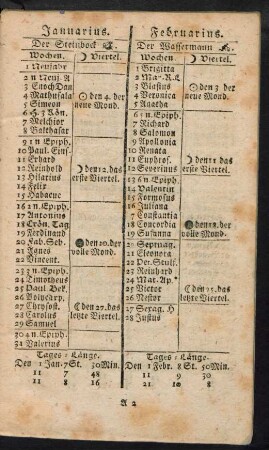 Januarius.
Der Steinbock
Wochen. ☽ Viertel.
1 Neujahr
2 n Neuj. A
3 Enoch Dan
4 Methusala
5 Simeon
6 H. 3 Kön.
7 Melchior
8 Balthasar
☉ den 4. der
neue Mond.
9 1 n Epiph.
10 Paul. Eins.
11 Erhard
12 Reinhold
13 Hilarius
14 Felix
15 Habacuc
☽ den 12. das
erste Viertel.
16 2 n. Epiph.
17 Antonius
18 Crön. Tag
19 Ferdinand
20 Fab. Seb.
21 Agnes
22 Vincent
den 20. der
volle Mond.
23 3 n. Epiph.
24 Timotheus
25 Paul. Bek.
26 Polycarp.
27 Chrysost.
28 Carolus
29 Samuel
☾ den 27. das
letzte Viertel.
30 4 n. Epiph.
31 Valerius
Tages-Länge.
Den 1 Jan. 7 St. 30 Min.
11 7 48
21 8 16
Februarius.
Der Wassermann
Wochen. ☽ Viertel.
1 Brigitta
2 Ma. R. L
3 Blasius
4 Veronica
5 Agatha
☉ den 3 der
neue Mond.
6 5 n Epiph.
7 Richard
8 Salomon
9 Apollonia
10 Renata
11 Euphros.
12 Severinus
☽ den 11 das
erste Viertel.
13 6 n Epiph.
14 Valentin
15 Formosus
16 Juliana
17 Constantia
18 Concordia
19 Susanna
den 18. der
volle Mond.
20 Septuag.
21 Eleonora
22 Pet. Stulf.
23 Reinhard
24 Mat. Ap.
25 Victor
26 Nestor
☾ den 25. das
letzte Viertel.
27 Sexag. H
28 Justus
Tages-Länge.
Den 1 Febr. 8 St. 50 Min.
11 9 30
21 10 8
A 2